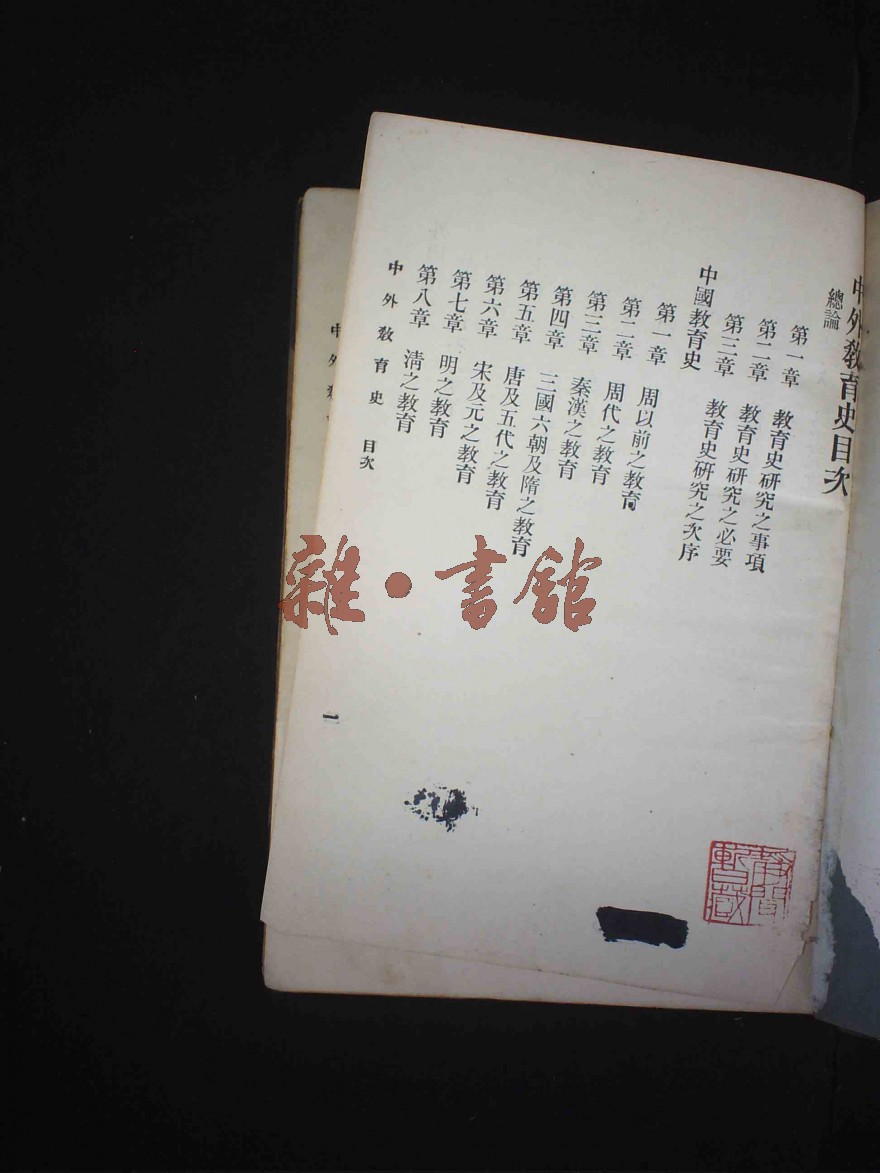 中外教育史目次
總論
第一章 教育史研究之事項
第二章 教育史研究之必要
第三章 教育史研究之次序
中國教育史
第一章 周以前之教育
第二章 周代之教育
第三章 秦漢之教育
第四章 三國六朝及隋之教育
第五章 唐及五代之教育
第六章 宋及元之教育
第七章 明之教育
第八章 淸之教育
中外教育史 目次
一
中外教
雜·書館